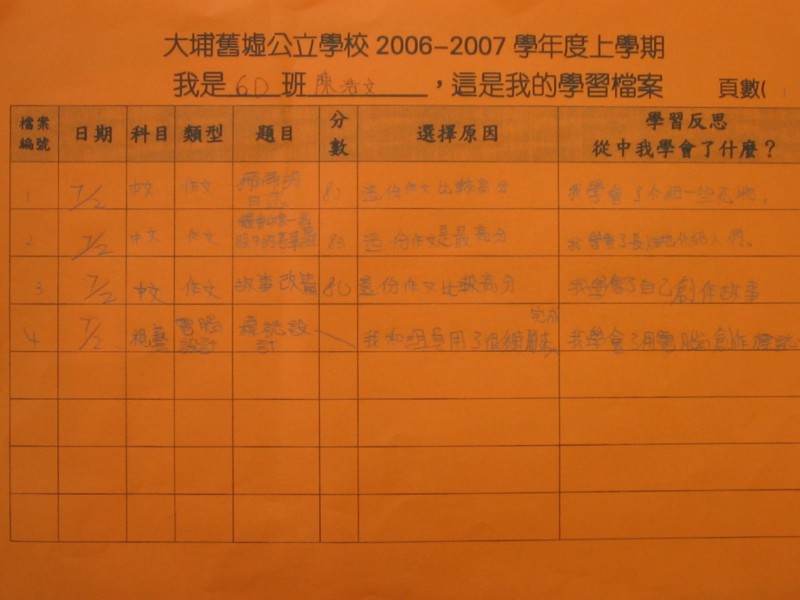 大埔舊墟公立學校 2006-2007 學年度上學期
我是 6D 班 陳浩文 ，這是我的學習檔案 頁數(
檔案編號 日期 科目 類型 題目 分數 選擇原因 學習反思 從中我學會了什麼？
1 7/2 中文 作文 83 這份作文比較高分 我學會了介紹一些
2 7/2 中文 作文 83 這份作文是最高分 我學會了
3 7/2 中文 作文 故事改寫 80 這份作文比較高分 我學會了自己創作故事
4 7/2 視藝 電腦設計 設計 我和組員用了很 完成 我學會了用電腦創作